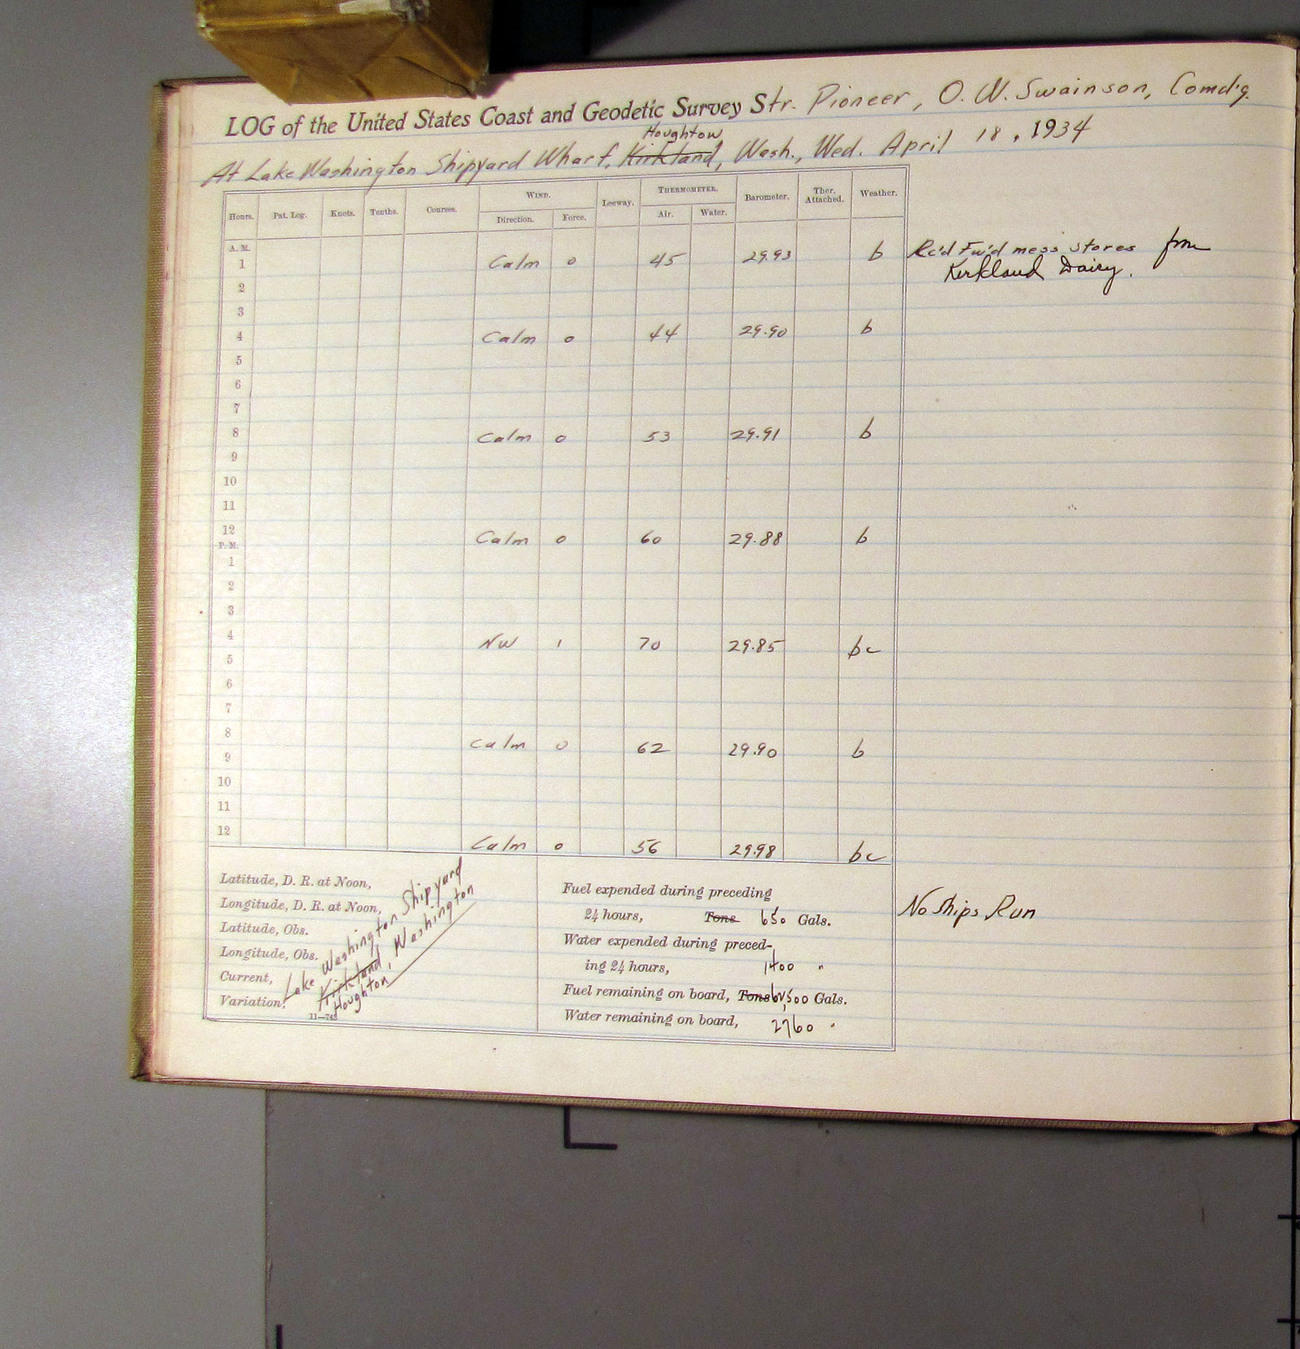 LOG of the United States Coast and Geodetic Survey Str. Pioneer, O. W. Swainson, Comd'g.
Houghton
At Lake Washington Shipyard Wharf, Kirkland, Wash., Wed. April 18, 1934
Hours. Pat. Log. Knots. Tenths. Courses. WIND. Leeway. THERMOMETER. Barometer. Ther. Attached. Weather.
Direction. Force. Air. Water.
A. M.
1 Calm 0 45 29.93 b Rc'd Fw'd mess stores from
2 Kirkland Dairy.
3
4 Calm 0 44 29.90 b
5
6
7
8 Calm 0 53 29.91 b
9
10
11
12 Calm 0 60 29.88 b
P. M.
1
2
3
4 NW 1 70 29.85 bc
5
6
7
8 Calm 0 62 29.90 b
9
10
11
12 Calm 0 56 29.98 bc
Latitude, D. R. at Noon,
Longitude, D. R. at Noon,
Latitude, Obs.
Longitude, Obs.
Current,
Variation,
Lake Washington Shipyard
Kirkland, Washington
Houghton
Fuel expended during preceding
24 hours, Tons 650 Gals.
Water expended during preced-
ing 24 hours, 1400 "
Fuel remaining on board, Tons Gals.
Water remaining on board, 2760 "
No Ships Run